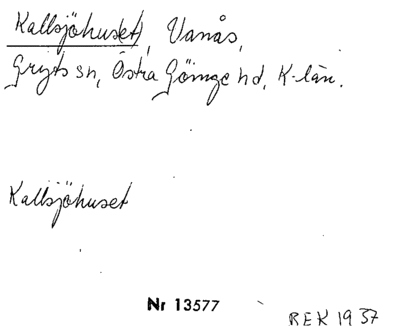 Kallsjöhuset), Vanås,
Gryts sn, Östra Göinge hd, K-län.
Kallsjöhuset
Nr 13577
REK 1937